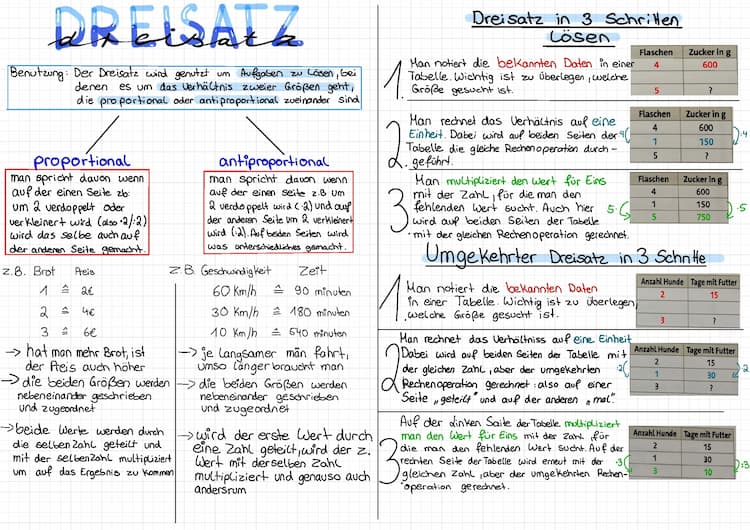 DREISATZ
dreisatz
Benutzung: Der Dreisatz wird genutzt um Aufgaben zu Lösen, bei
denen es um das Verhältnis zweier Größen geht,
die proportional oder antiproportional zueinander sind
proportional
man spricht davon wenn
auf der einen Seite zb:
um 2 verdoppelt oder
verkleinert wird (also ·2/:2)
wird das selbe auch auf
der anderen Seite gemacht.
z.B. Brot Preis
1 ≙ 2€
2 ≙ 4€
3 ≙ 6€
→ hat man mehr Brot, ist
der Preis auch höher
→ die beiden Größen werden
nebeneinander geschrieben
und zugeordnet
→ beide Werte werden durch
die selben Zahl geteilt und
mit der selben Zahl multipliziert
um auf das Ergebnis zu kommen
antiproportional
man spricht davon wenn
auf der einen Seite z.B um
2 verdoppelt wird (·2) und auf
der anderen Seite um 2 verkleinert
wird (:2). Auf beiden Seiten wird
was unterschiedliches gemacht.
z.B. Geschwindigkeit Zeit
60 Km/h ≙ 90 minuten
30 Km/h ≙ 180 minuten
10 Km/h ≙ 540 minuten
→ je langsamer man fährt,
umso länger braucht man
→ die beiden Größen werden
nebeneinander geschrieben
und zugeordnet
→ wird der erste Wert durch
eine Zahl geteilt, wird der 2.
Wert mit derselben Zahl
multipliziert und genauso auch
andersrum
Dreisatz in 3 Schritten
Lösen
1. Man notiert die bekannten Daten in einer
Tabelle. Wichtig ist zu überlegen, welche
Größe gesucht ist.
Flaschen Zucker in g
4 600
5 ?
2. Man rechnet das Verhältnis auf eine
Einheit. Dabei wird auf beiden Seiten der
Tabelle die gleiche Rechenoperation durch-
geführt.
Flaschen Zucker in g
4 600
:4 1 150 :4
5 ?
3. Man multipliziert den Wert für Eins
mit der Zahl, für die man den
fehlenden Wert sucht. Auch hier
wird auf beiden Seiten der Tabelle
mit der gleichen Rechenoperation gerechnet.
Flaschen Zucker in g
4 600
1 150
5· 5 750 ·5
Umgekehrter Dreisatz in 3 Schritte
1. Man notiert die bekannten Daten
in einer Tabelle. Wichtig ist zu überlegen,
welche Größe gesucht ist.
Anzahl Hunde Tage mit Futter
2 15
3 ?
2. Man rechnet das Verhältniss auf eine Einheit
Dabei wird auf beiden Seiten der Tabelle mit
der gleichen Zahl, aber der umgekehrten
Rechenoperation gerechnet: also auf einer
Seite „geteilt" und auf der anderen „mal."
Anzahl Hunde Tage mit Futter
2 15
:2 1 30 ·2
3 ?
3. Auf der Linken Saite der Tabelle multipliziert
man den Wert für Eins mit der Zahl, für
die man den fehlenden Wert sucht. Auf der
rechten Seite der Tabelle wird erneut mit der
gleichen Zahl, aber der umgekehrten Rechen-
operation gerechnet.
Anzahl Hunde Tage mit Futter
2 15
1 30
·3 3 10 :3